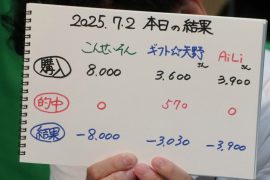 2025.7.2 本日の結果
こんせいそん ギフト☆天野さん AiLiさん
購入 8.000 3.600 3.900
的中 0 570 0
結果 -8.000 -3.030 -3.900